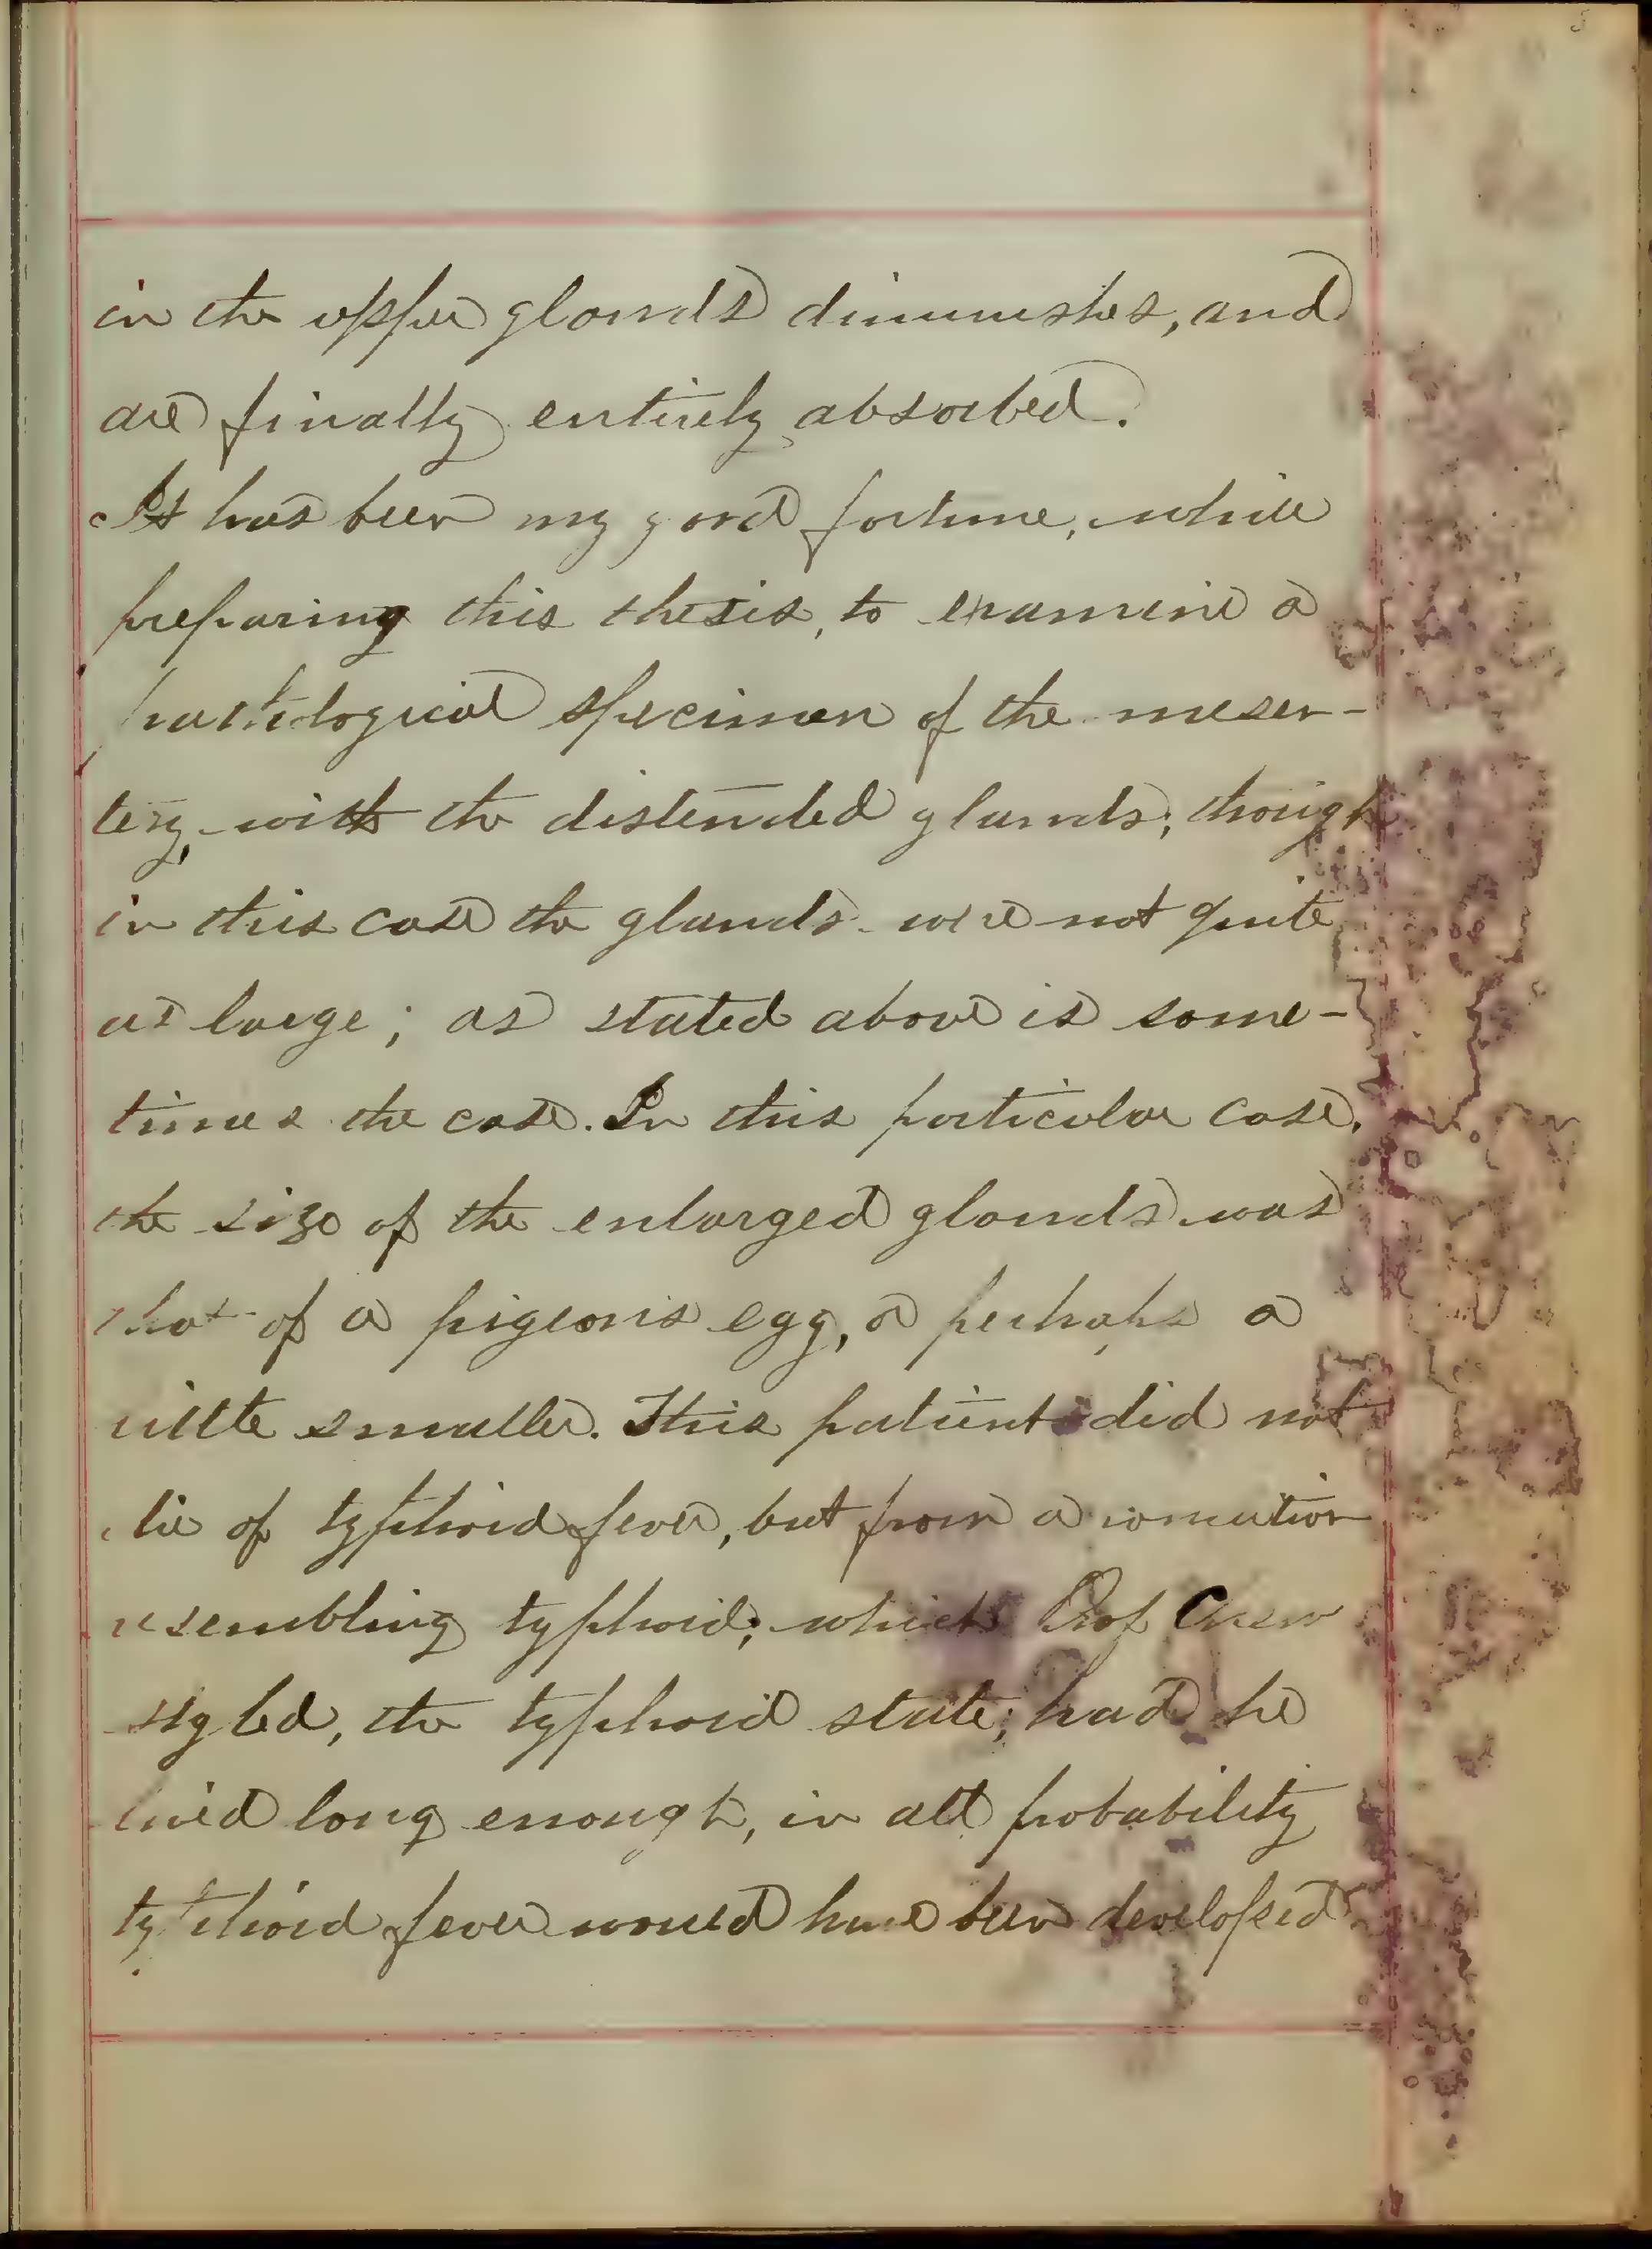 in the upper glands diminishes, and
are finally entirely absorbed.
It has been my good fortune, while
preparing this thesis, to examine a
pathological specimen of the mesen-
tery, with the distended glands; though
in this case the glands were not quite
as large; as stated above is some-
times the case. In this particular case,
the size of the enlarged glands was
that of a pigeons egg, or perhaps a
little smaller. This patient did not
die of typhoid fever, but from a condition
resembling typhoid; which Prof Chew
styled, the typhoid state; had he
lived long enough, in all probability
typhoid fever would have been developed